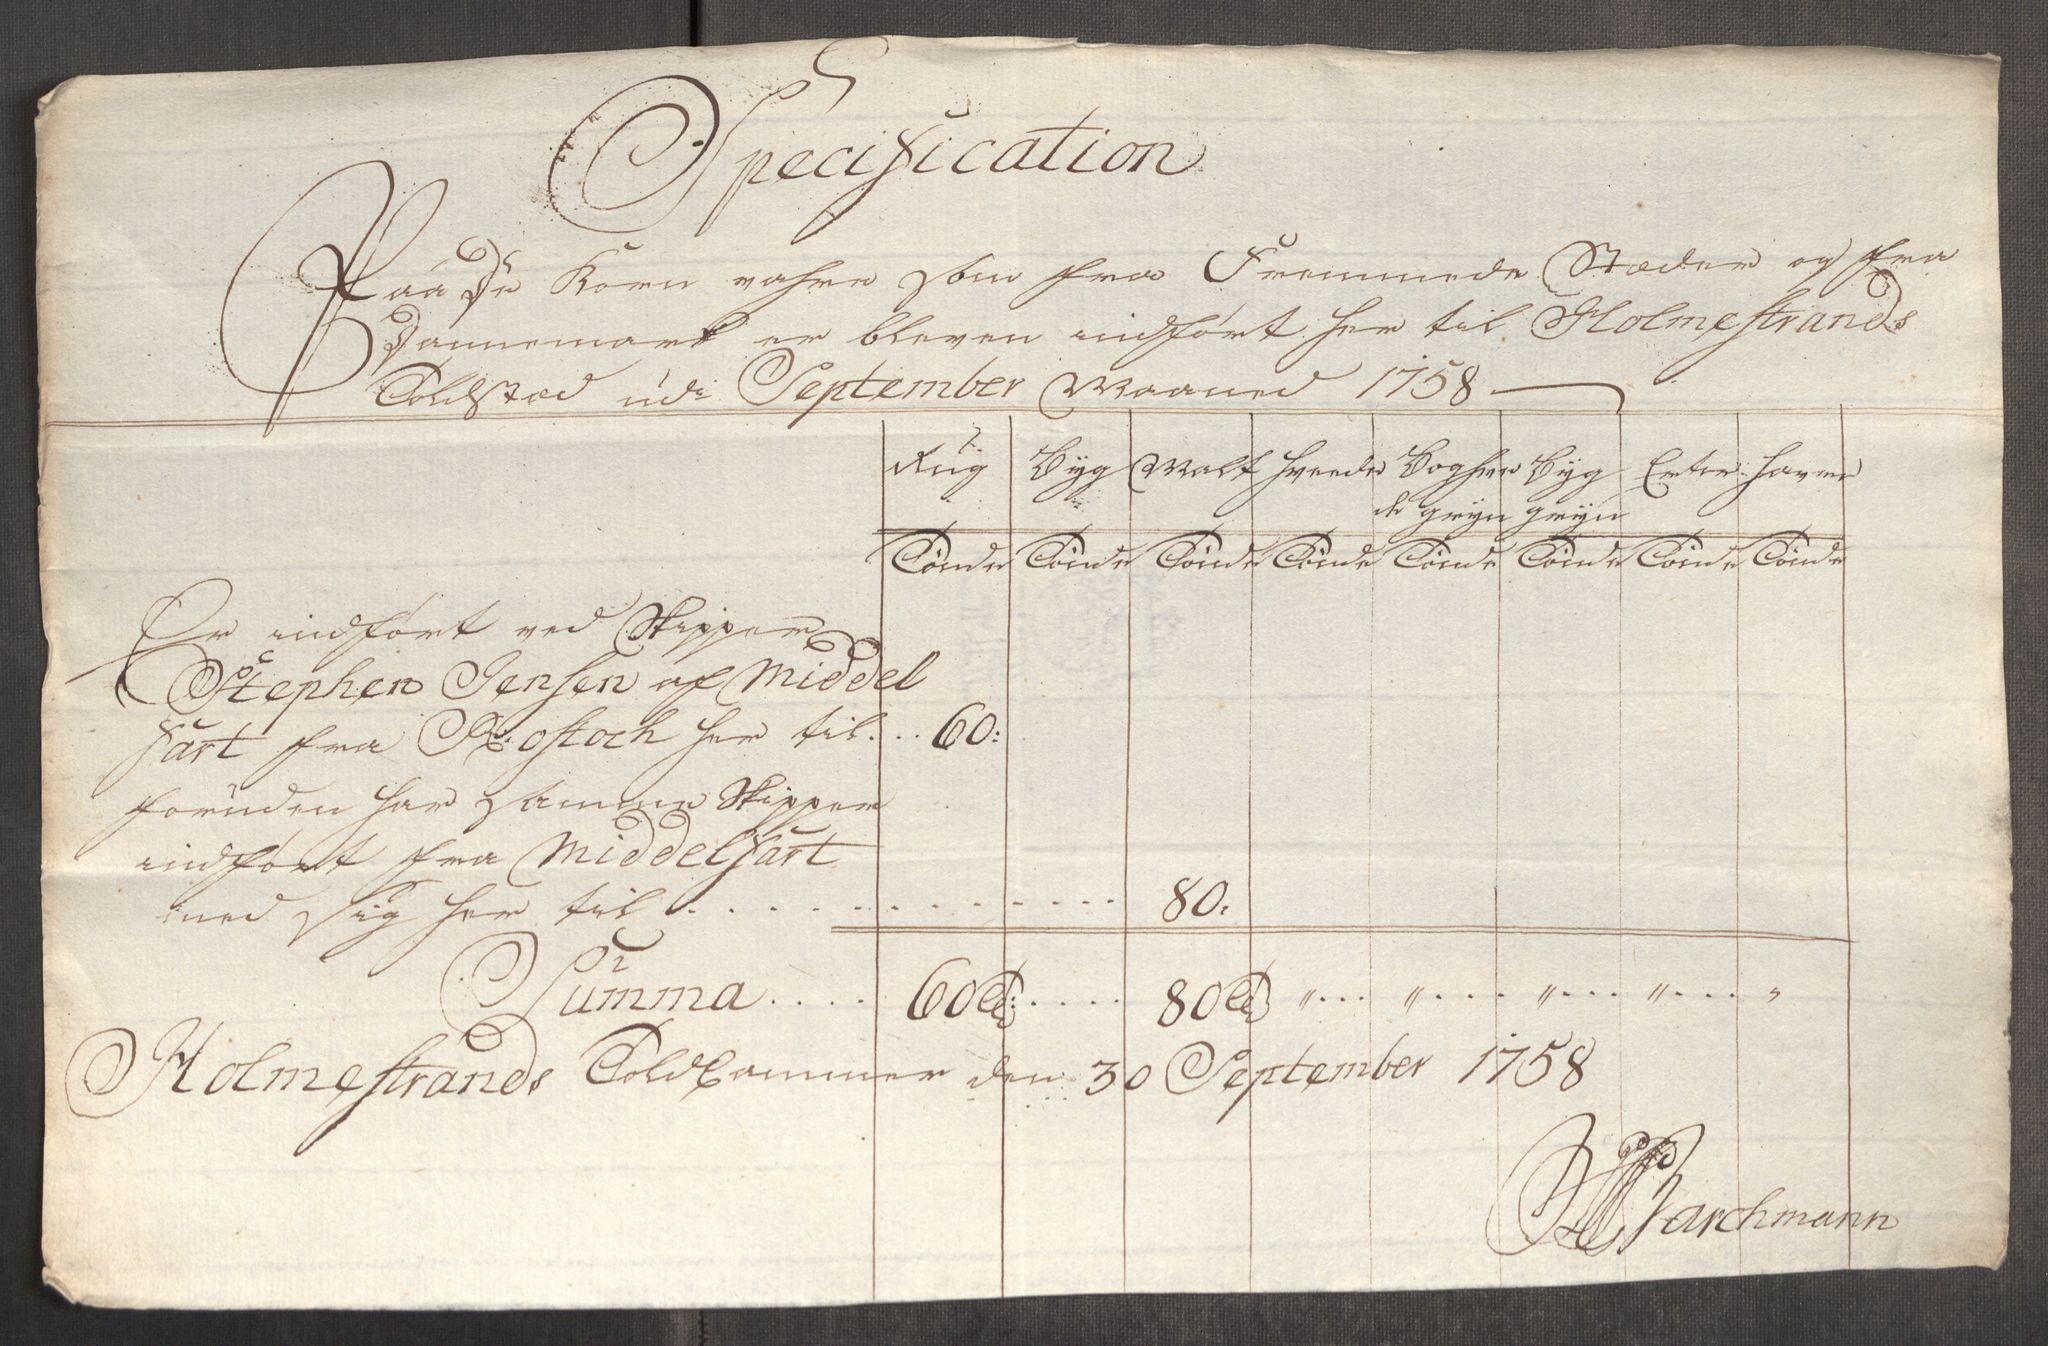 Specification
Paa De Korn vahre som fra Fremmede Stæder og fra
Dannemark er bleven indført her til Holmestrands
Toldstæd udi September Maaned 1758
Rug Byg Malt Hvede Boghve Byg Erter Haver
de gryn gryn
Tønde Tønde Tønde Tønde Tønde Tønde Tønde Tønde
Er indført ved Skipper
Stephen Jensen af Middel
fart fra Rostoch her til... 60:
foruden har samme Skipper
indført fra Middelfart
med sig her til . . . . . . . . . . . . 80.
Summa..... 60 Td: .... 80 Td " ... " ... " ... " ... "
Holmestrands Toldkammer den 30 September 1758
Parchmann